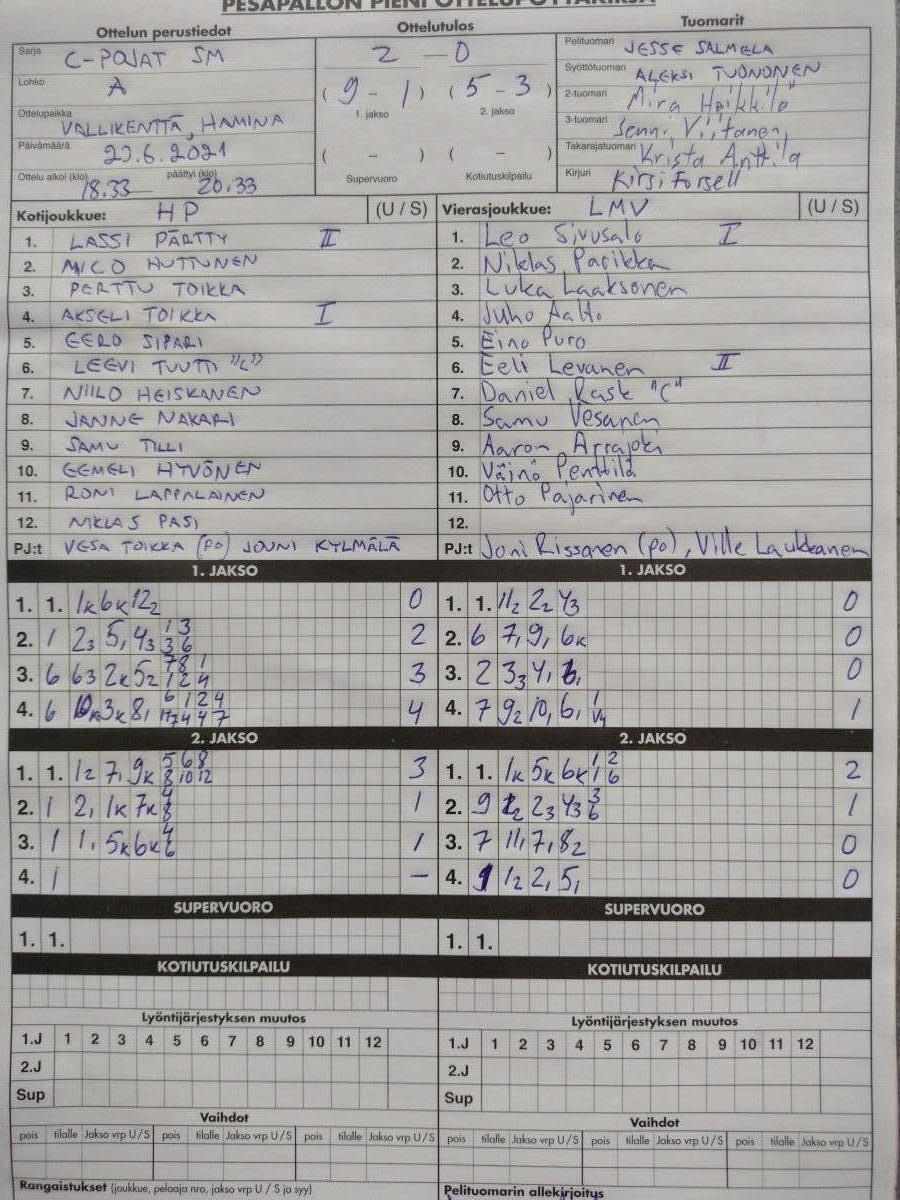 PESÄPALLON PIENI OTTELUPÖYTÄKIRJA
Ottelun perustiedot
Sarja C-POJAT SM
Lohko A
Ottelupaikka VALLIKENTTÄ, HAMINA
Päivämäärä .6.2021
Ottelu alkoi (klo) 18.33 päättyi (klo) 20.33
Ottelutulos
2 - 0
( 9 - 1 ) ( 5 - 3 )
1. jakso 2. jakso
( - ) ( - )
Supervuoro Kotiutuskilpailu
Tuomarit
Pelituomari JESSE SALMELA
Syöttötuomari ALEKSI TUONONEN
2-tuomari Mira Heikkilä
3-tuomari Senni Viitanen
Takarajatuomari Krista Anttila
Kirjuri Kirsi Forsell
Kotijoukkue: HP (U / S)
1. LASSI PÄRTTY II
2. MICO HUTTUNEN
3. PERTTU TOIKKA
4. AKSELI TOIKKA I
5. EERO SIPARI
6. LEEVI TUUTTI "C"
7. NIILO HEISKANEN
8. JANNE NAKARI
9. SAMU TILLI
10. EEMELI HYVÖNEN
11. RONI LAPPALAINEN
12. NIKLAS PASI
PJ:t VESA TOIKKA (PO) JOUNI KYLMÄLÄ
Vierasjoukkue: LMV (U / S)
1. Leo Sivusalo I
2. Niklas Parikka
3. Luka Laaksonen
4. Juho Aalto
5. Eino Puro
6. Eeli Levanen II
7. Daniel Rask "C"
8. Samu Vesanen
9. Aaron Arrajoki
10. Väinö Penttilä
11. Otto Pajarinen
12.
PJ:t Joni Rissanen (po), Ville Laukkanen
1. JAKSO
1. 1. 1K 6K 122 0
2. 1 23 51 43 1 3 2
3 6
3. 6 63 2K 52 7 8 1 3
1 2 4
4. 6 3K 81 6 1 2 4 4
1. JAKSO
1. 1. 112 22 43 0
2. 6 71 91 6K 0
3. 2 33 41 0
4. 7 92 101 61 1
2. JAKSO
1. 1. 12 71 9K 5 6 8 3
8 10 12
2. 1 21 1K 7K 4 1
8
3. 1 11 5K 6K 4 1
6
4. 1 –
2. JAKSO
1. 1. 1K 5K 6K 1 2 2
1 6
2. 9 23 43 3 1
6
3. 7 111 71 82 0
4. 12 21 51 0
SUPERVUORO
1. 1.
SUPERVUORO
1. 1.
KOTIUTUSKILPAILU
KOTIUTUSKILPAILU
Lyöntijärjestyksen muutos
1.J 1 2 3 4 5 6 7 8 9 10 11 12
2.J
Sup
Lyöntijärjestyksen muutos
1.J 1 2 3 4 5 6 7 8 9 10 11 12
2.J
Sup
Vaihdot
pois tilalle Jakso vrp U / S pois tilalle Jakso vrp U / S pois tilalle Jakso vrp U / S
Vaihdot
pois tilalle Jakso vrp U / S pois tilalle Jakso vrp U / S pois tilalle Jakso vrp U / S
Rangaistukset (joukkue, pelaaja nro, jakso vrp U / S ja syy)
Pelituomarin allekirjoitys